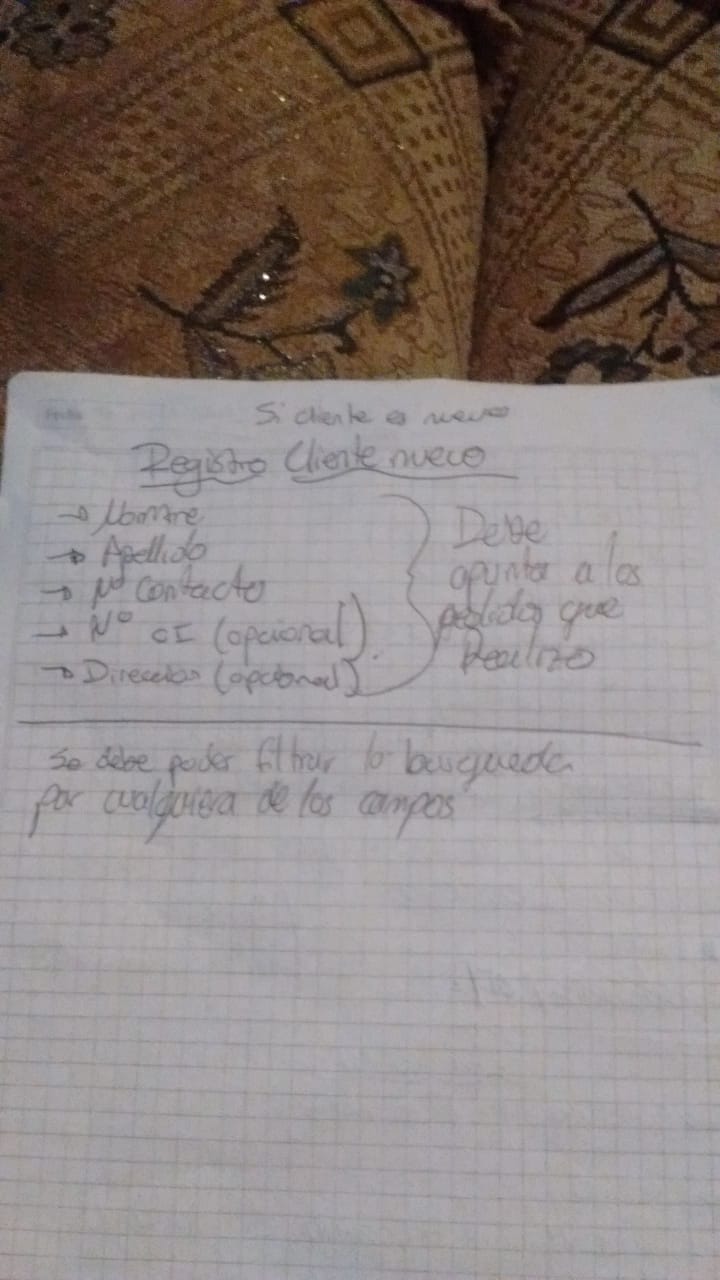 Si cliente es nuevo
Registro Cliente nuevo
→ Nombre
→ Apellido
→ Nº Contacto
→ Nº CI (opcional)
→ Direccion (opcional)
Debe
apuntar a los
pedidos que
Realizo
Se debe poder filtrar la busqueda
por cualquiera de los campos